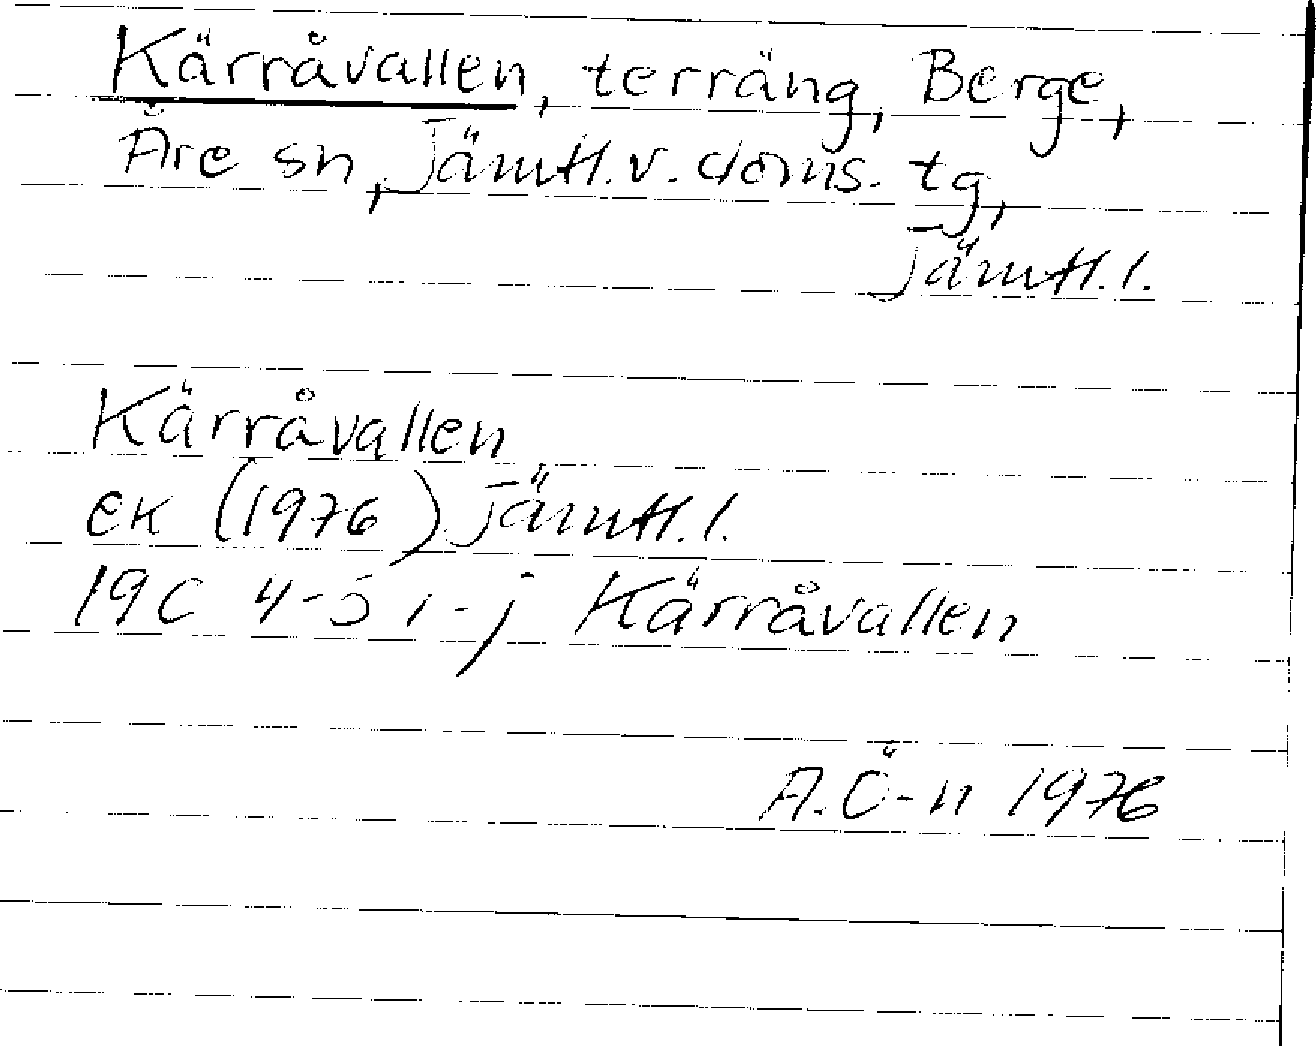 Kärråvallen, terräng, Berge,
Åre sn, Jämtl. v. doms. tg,
Jämtl. l.
Kärråvallen
ek (1976) Jämtl. l.
19C 4-5 i-j Kärråvallen
A. Ö-n 1976